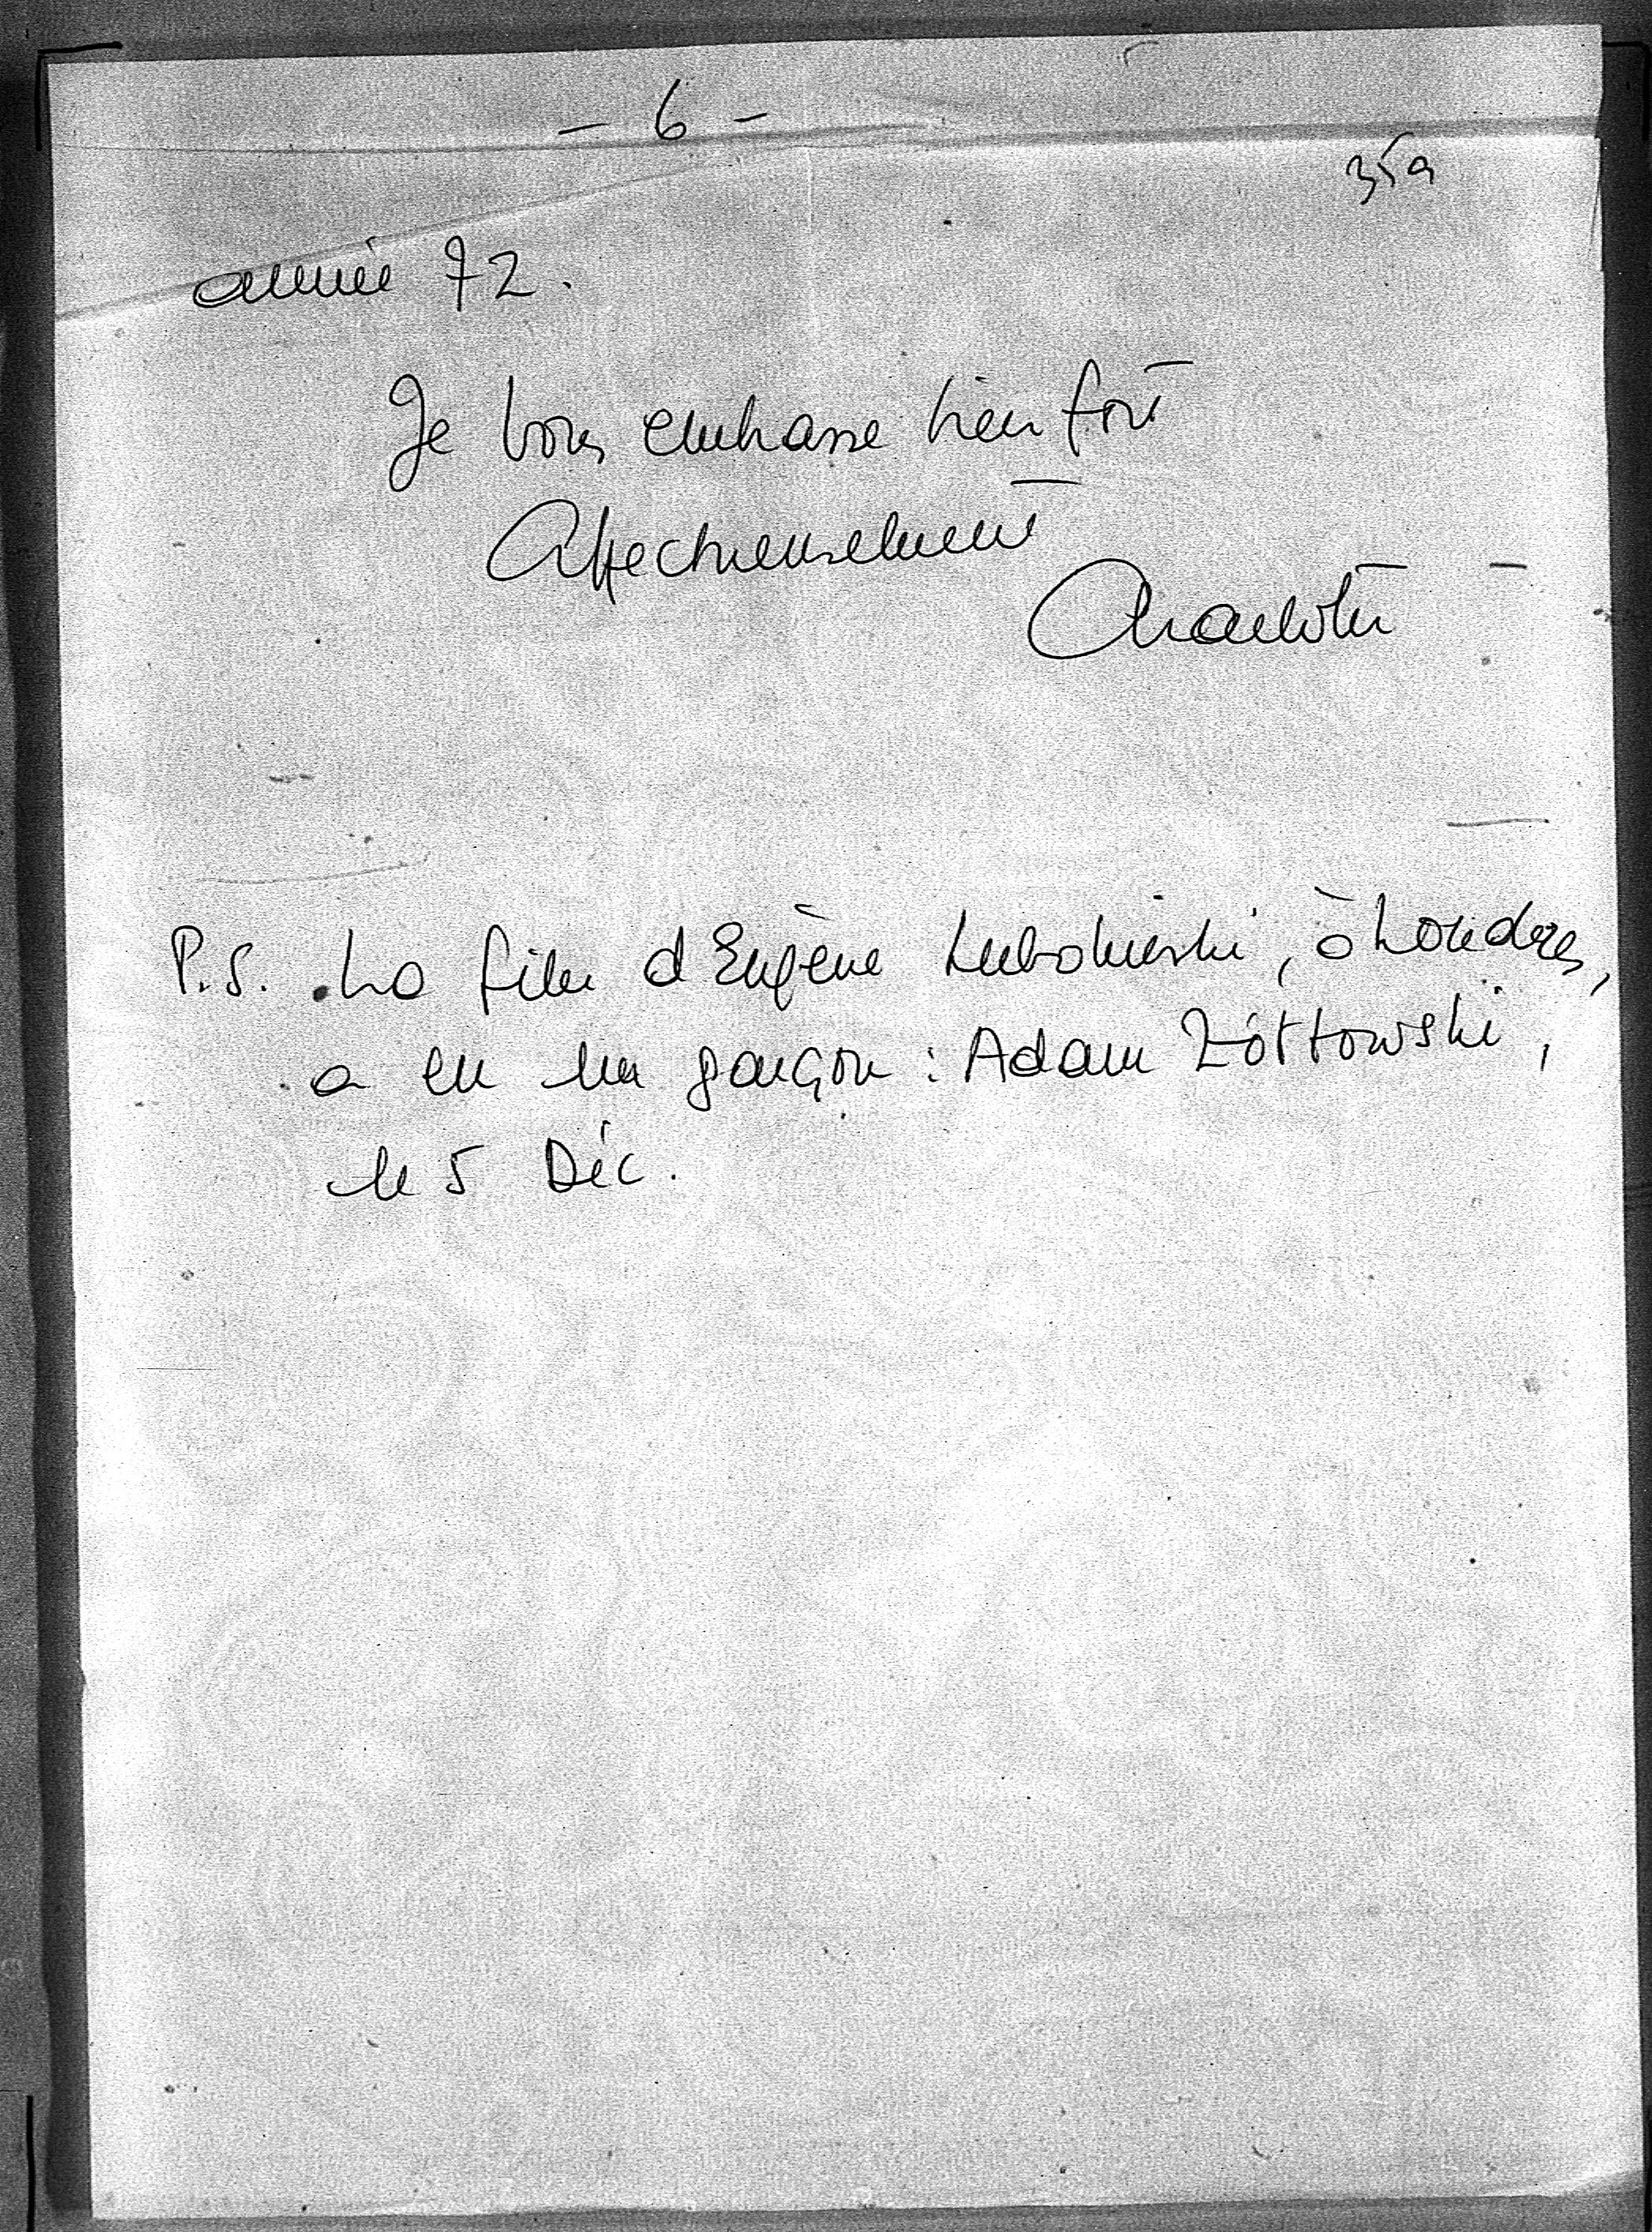 - 6 -
359
année 72.
Je vous embrasse bien fort
Affectueusement
Charlotte
P.S. La fille d'Eugène Lubomirski, à Londres,
a eu un garçon : Adam Żółtowski,
le 5 Déc.